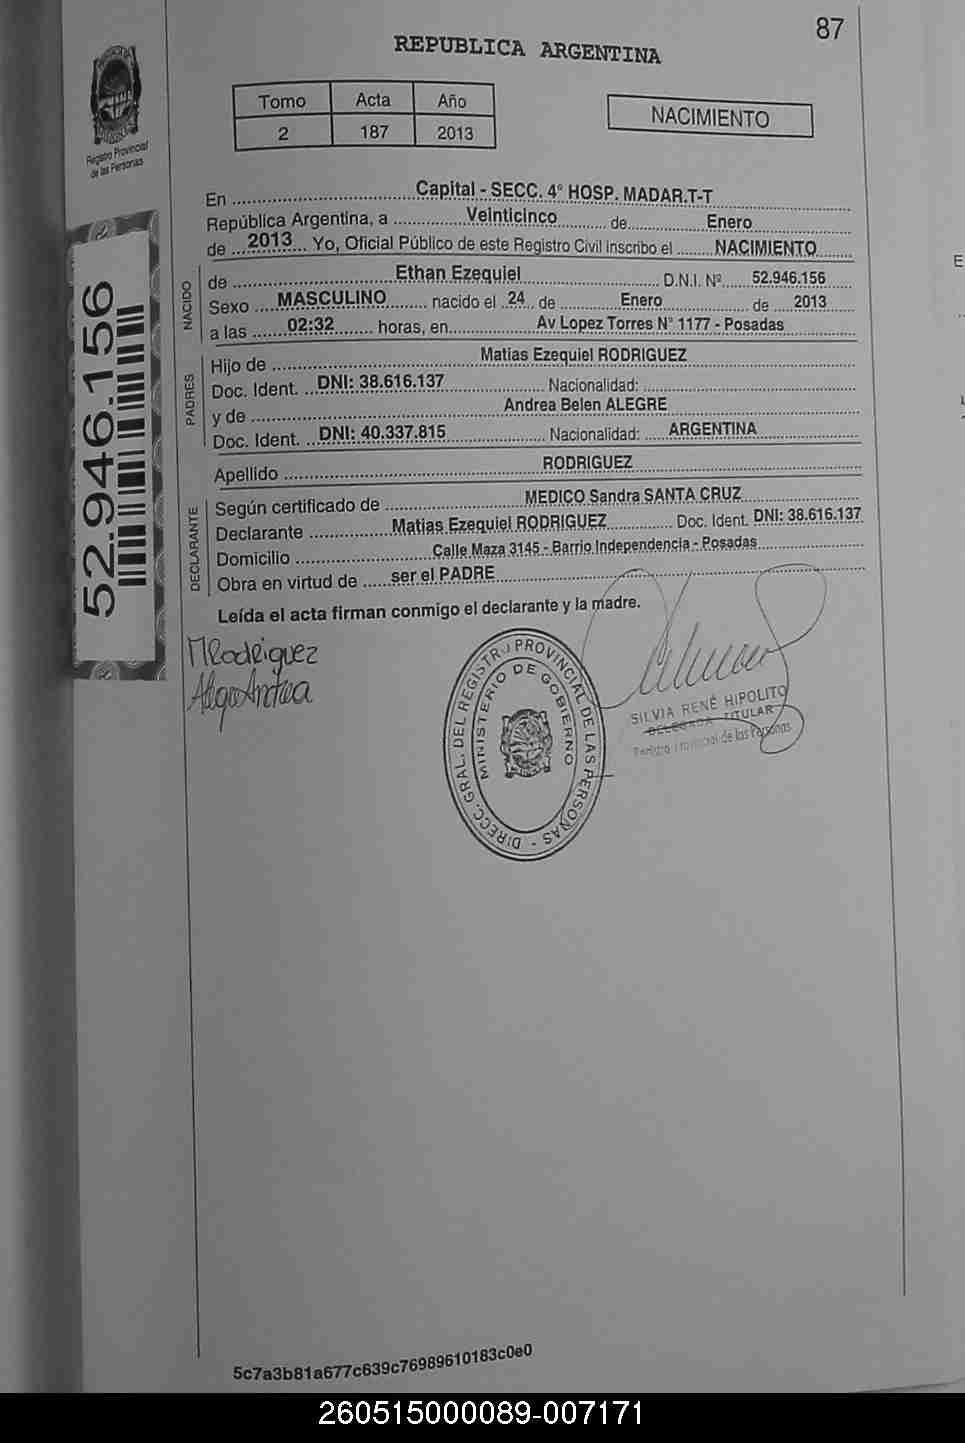 87
REPUBLICA ARGENTINA
Tomo Acta Año
2 187 2013
NACIMIENTO
Registro Provincial
de las Personas
En Capital - SECC. 4° HOSP. MADAR.T-T
República Argentina, a Veinticinco de Enero
de 2013 Yo, Oficial Público de este Registro Civil inscribo el NACIMIENTO
NACIDO
de Ethan Ezequiel D.N.I. Nº 52.946.156
Sexo MASCULINO nacido el 24 de Enero de 2013
a las 02:32 horas, en Av Lopez Torres N° 1177 - Posadas
PADRES
Hijo de Matias Ezequiel RODRIGUEZ
Doc. Ident. DNI: 38.616.137 Nacionalidad:
y de Andrea Belen ALEGRE
Doc. Ident. DNI: 40.337.815 Nacionalidad: ARGENTINA
Apellido RODRIGUEZ
DECLARANTE
Según certificado de MEDICO Sandra SANTA CRUZ
Declarante Matias Ezequiel RODRIGUEZ Doc. Ident. DNI: 38.616.137
Domicilio Calle Maza 3145 - Barrio Independencia - Posadas
Obra en virtud de ser el PADRE
Leída el acta firman conmigo el declarante y la madre.
52.946.156
MRodriguez
Alegre Andrea
DIRECC. GRAL. DEL REGISTRO PROVINCIAL DE LAS PERSONAS -
MINISTERIO DE GOBIERNO
SILVIA RENÉ HIPOLITO
DELEGADA TITULAR
Registro Provincial de las Personas
5c7a3b81a677c639c76989610183c0e0
260515000089-007171